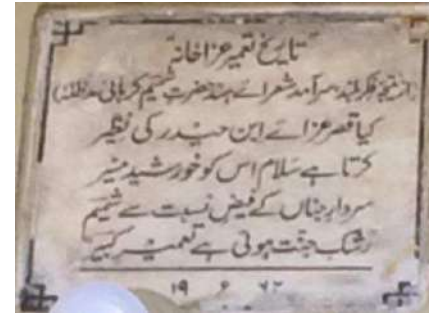 "تاریخ تعمیر عزا خانہ"
(از نتیجۂ فکر بلند سرآمد شعرائے ہند حضرت شمیم کرہانی مدظلہٗ)
کیا قصرِ عزائے ابن حیدر کی نظیر
کرتا ہے سلام اس کو خورشید منیر
سردار جناں کے فیض نسبت سے شمیم
رشک جنت ہوئی ہے تعمیر
۱۹ ۶ ۷۲